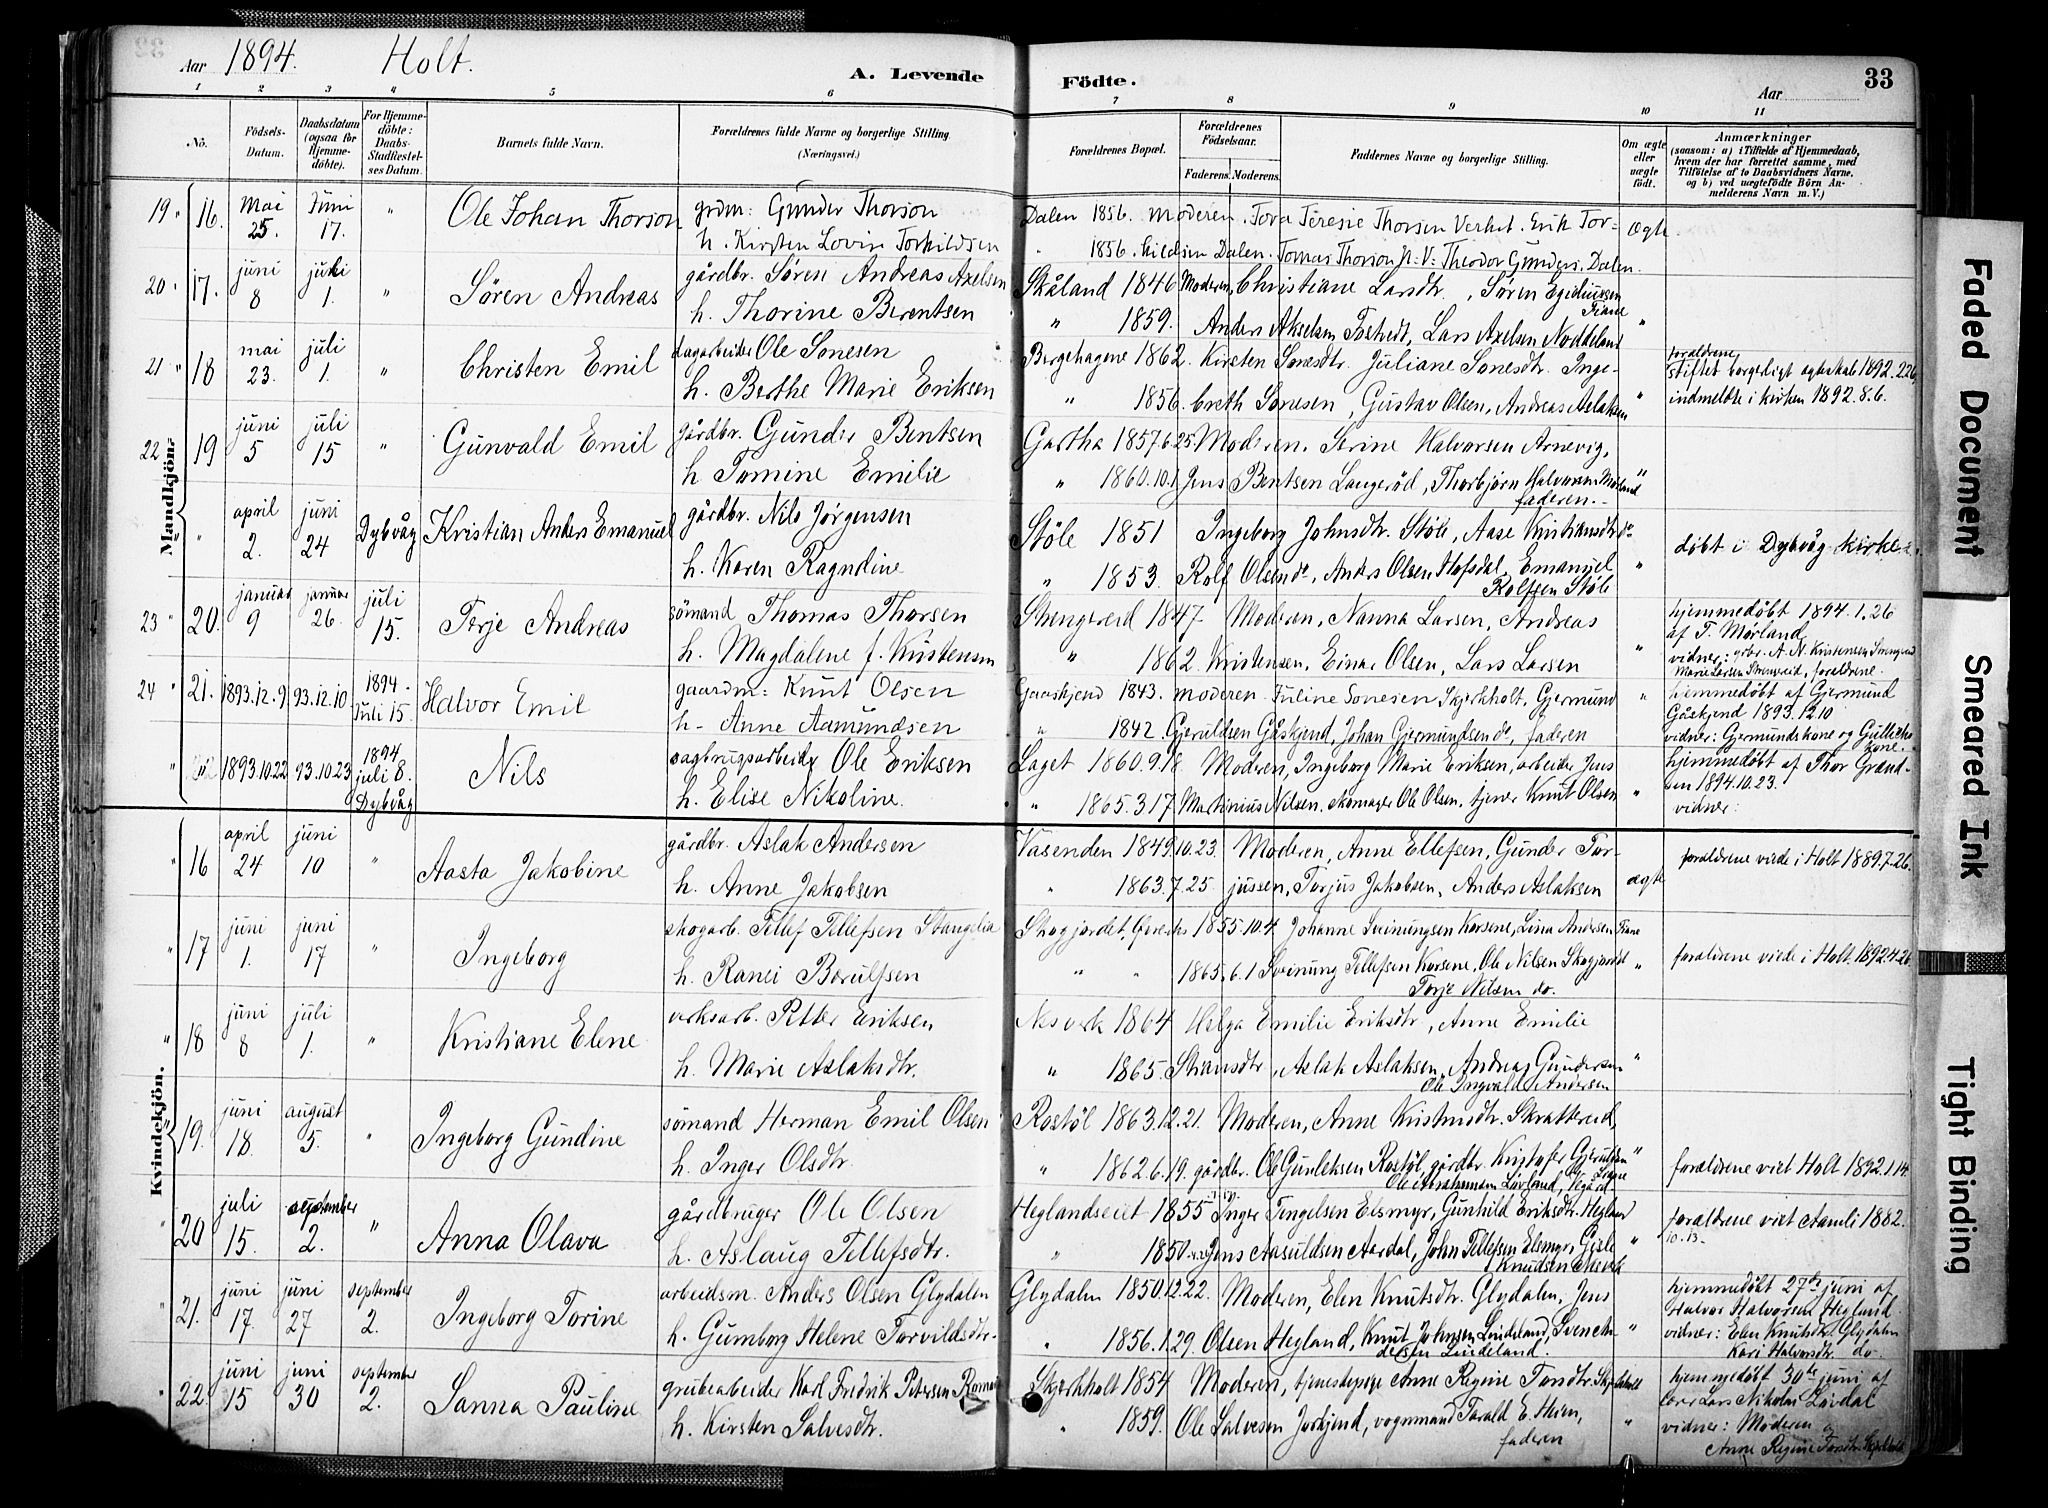 Aar 1894. Holt. A. Levende Födte. Aar 33
1 2 3 4 5 6 7 8 9 10 11
No. Födsels-Datum. Daabsdatum (ogsaa for Hjemme-döbte). For Hjemme-döbte: Daabs-Stadfæstel-ses Datum. Barnets fulde Navn. Forældrenes fulde Navne og borgerlige Stilling (Næringsvei.) Forældrenes Bopæl. Forældrenes Födselsaar. Faderens. Moderens. Faddernes Navne og borgerlige Stilling. Om ægte eller uægte födt. Anmærkninger (saasom: a) i Tilfælde af Hjemmedaab, hvem der har forrettet samme, med Tilföielse af to Daabsvidners Navne, og b) ved uægtefödte Börn An-melderens Navn m. V.)
Mandkjön.
19 " 16. Mai 25. Juni 17. " Ole Johan Thorson grdm: Gunder Thorson Dalen 1856. Moderen. Tora Teresie Thorsen Verket. Erik Tor= ægte
h. Kirsten Lovise Torkildsen " 1856. kildsen Dalen. Tomas Thorson N. V: Theodor Gunders. Dalen.
20 " 17. juni 8 juli 1. " Søren Andreas gårdbr. Søren Andreas Axelsen Skåland 1846 Moderen, Christiane Larsdtr., Søren Egidiussen Tiane
h. Thorine Berentsen " 1859. Anders Akselsen Fostvedt, Lars Axelsen Noddeland "
21 " 18 mai 23. juli 1. " Christen Emil dagarbeider Ole Sonesen Bergehagene 1862. Kirsten Sonesdtr. Juliane Sonesdtr. Inge- forældrene stiftet borgerligt ægteskab 1892.2.26
h. Berthe Marie Eriksen " 1856. breth Sonesen, Gustav Olsen, Andreas Aslaksen " indmeldte i kirken 1892.8.6.
22 " 19 juni 5 juli 15 " Gunvald Emil gårdbr. Gunder Bentsen Gartha 1857.6.25. Moderen. Serine Halvorsen Arnevig,
h. Tomine Emilie " 1860.10.1 Jens Bentsen Langerød, Thorbjørn Halvorsen Morland "
faderen.
" april 2. juni 24 Dybvåg Kristian Anders Emanuel gårdbr. Nils Jørgensen Støle 1851 Ingeborg Johnsdtr. Støle, Aase Kristiansdtr do døbt i Dybvåg kirke.
h. Karen Ragndine " 1853. Rolf Olsen do, Anders Olsen Hofsdal, Emanuel Rolfsen Støle "
23 " 20. januar 9 januar 26. juli 15. Terje Andreas sømand Thomas Thorsen Strengereid 1847 Moderen, Nanna Larsen, Andreas hjemmedøbt 1894.1.26 af T. Mørland
h. Magdalene f. Kristensen " 1862. Kristensen, Einar Olsen, Lars Larsen " vidner: grbr. A. N. Kristensen
24 " 21. 1893.12.9 93.12.10. 1894. Juli 15. Halvor Emil gaardm: Knut Olsen Gaaskjend 1843. moderen. Juline Sonesen Skjerkholt, Gjermund " hjemmedøbt af Gjermund Gåskjend 1893.12.10
h. Anne Aamundsen " 1842. Gjeruldsen Gåskjend, Johan Gjermundsen do, faderen vidner: Gjermunds kone og
" 1893.10.22 93.10.23 1894 juli 8. Dybvåg Nils sagbrugsarbeider Ole Eriksen Laget 1860.9.18. Moderen, Ingeborg Marie Eriksen, arbeider Jens hjemmedøbt af Thor Grand-sen 1894.10.23.
h. Elise Nikoline. " 1865.3.17. Martinius Nilsen, skomager Ole Olsen, tjener Knut Olsen " vidner:
Kvindekjön.
" 16 april 24 juni 10 " Aasta Jakobine gårdbr. Aslak Andersen Vasenden 1849.10.23. Moderen, Anne Ellefsen, Gunder Tor- forældrene viede i Holt 1889.7.26.
h. Anne Jakobsen " 1863.7.25 jussen, Torjus Jakobsen, Anders Aslaksen ægte
" 17 juni 1. juni 17 " Ingeborg skogarb. Tellef Tellefsen Stangelia Skogjordet, 1855.10.4 Johanne Sveinungsen Korsene, Lina Andersen Tiane
h. Ranei Børulfsen " " 1865.6.1 Sveinung Tellefsen Korsene, Ole Nilsen Skogjordet " forældrene viede i Holt. 1892.4.26.
Torje Nilsen do.
" 18 juni 8 juli 1. " Kristiane Elene verksarb. Petter Eriksen Nes verk 1864 Helga Emilie Eriksdtr, Anne Emilie
h. Marie Aslaksdtr. " 1865. Stiansdtr, Aslak Aslaksen, Andreas Gundersen "
Ole Ingvald Andersen
" 19. juni 18. august 5. " Ingeborg Gundine sømand Herman Emil Olsen Rostøl 1863.12.21. Moderen, Anne Kristensdtr. Skrattereid,
h. Inger Olsdtr. " 1862.6.19. gårdbr. Ole Gunleksen Rostøl, gårdbr. Kristofer Gjeruldsen " forældrene viet Holt 1892.1.14
Ole Abrahamsen Løvland,
" 20 juli 15. september 2. " Anna Olava gårdbruger Ole Olsen Heglandseiet 1855 Inger Tengelsen Elsmyr, Gunhild Eriksdtr. Hegland forældrene viet Aamli 1882. 10.13.
h. Aslaug Tellefsdtr. " 1850. Jens Aasuldsen Aardal, John Tellefsen Elsmyr, Gisle Knudsen "
" 21. juni 17. juni 27 september 2. Ingeborg Torine arbeidsm. Anders Olsen Glydalen Glydalen 1850.12.22. Moderen, Elen Knutsdtr. Glydalen, Jens hjemmedøbt 27de juni af Halvor Halvorsen Hegland
h. Gumborg Helene Torvildsdtr. " 1856.1.29. Olsen Hegland, Knut Johnsen Lindeland, Sven An-dersen Lindeland. " vidner: Elen Knutsdtr. Glydalen Kari Halvorsdtr. do.
" 22. juni 15 juni 30 september 2. Sanna Pauline grubearbeider Karl Fredrik Petersen Skjerkholt 1854 Moderen, tjenestepige Anne Regine Tonsdtr. hjemmedøbt 30te juni af Lars Nikolai Løvdal
h. Kirsten Salvesdtr. " 1859. Ole Salvesen Joskjend, vognmand Torald E. Heien, faderen " vidner: Moderen og Anne Regine
Faded Document
Smeared Ink
Tight Binding